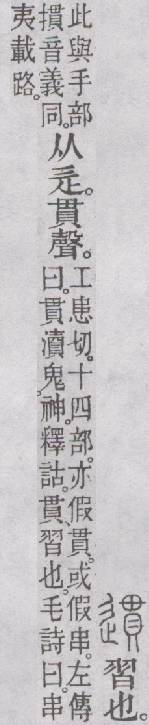 遦習也。
此與手部
摜音義同。
从辵。貫聲。
工患切。十四部。亦假貫。或假串。左傳
曰。貫瀆鬼神。釋詁。貫、習也。毛詩曰。串
夷載路。